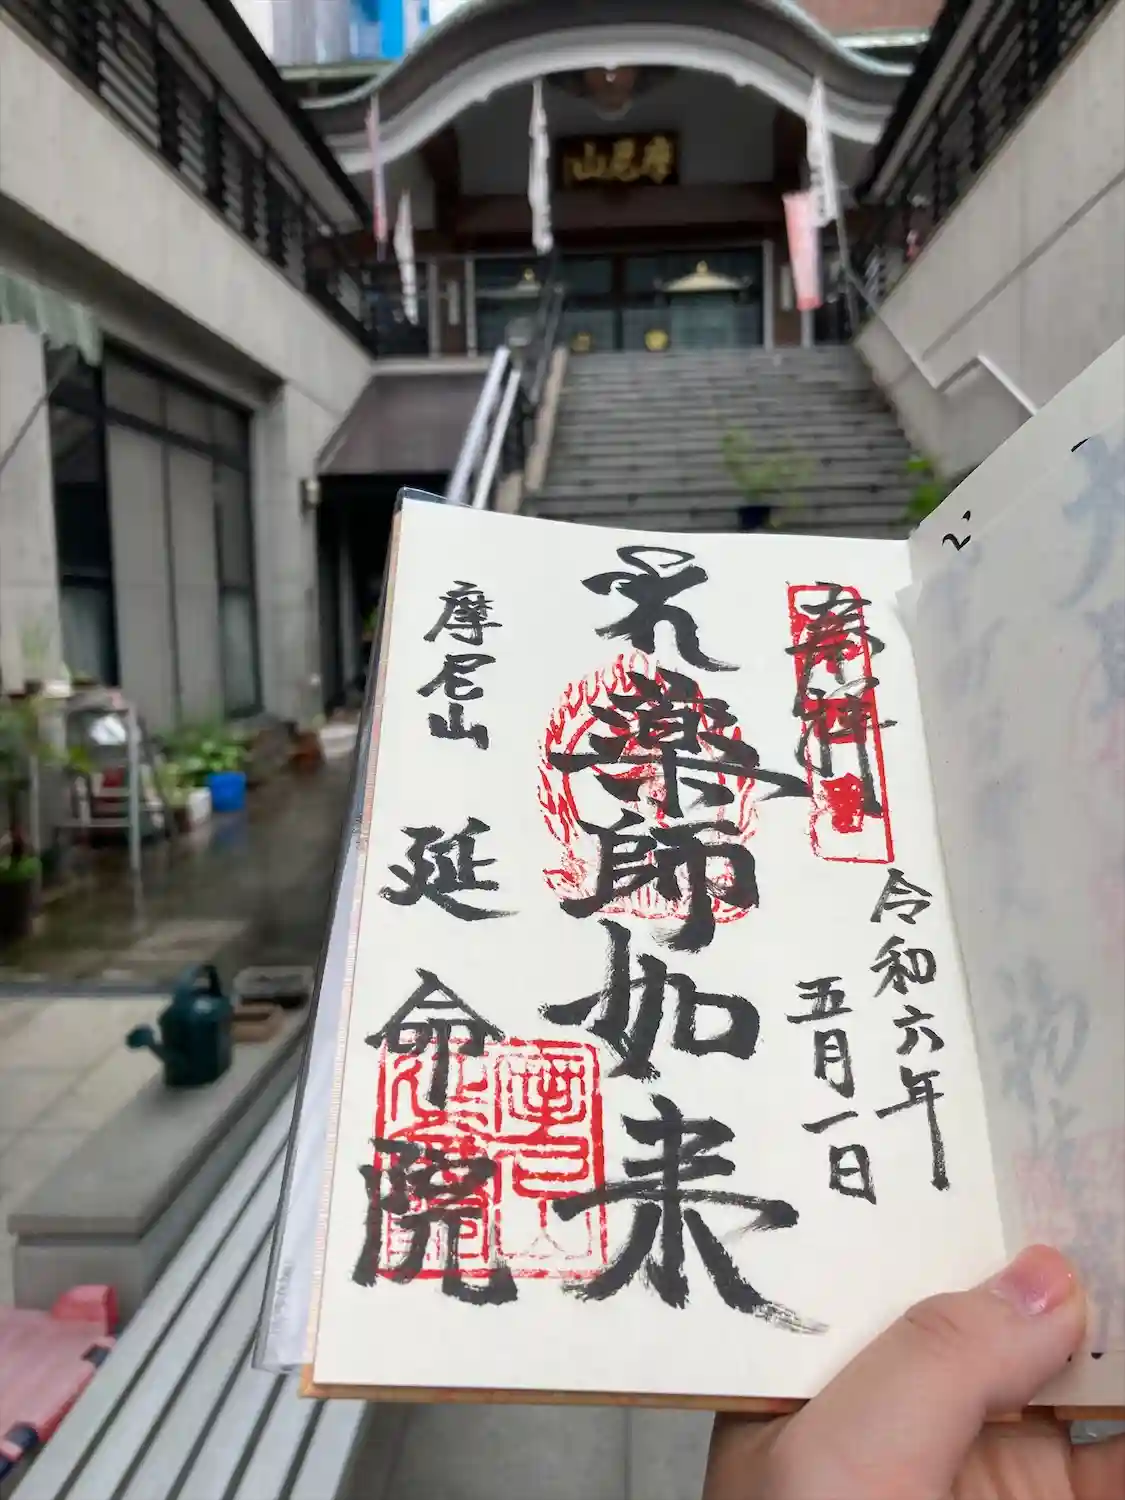 摩尼山
奉拝
令和六年
五月一日
薬師如来
摩尼山 延命院